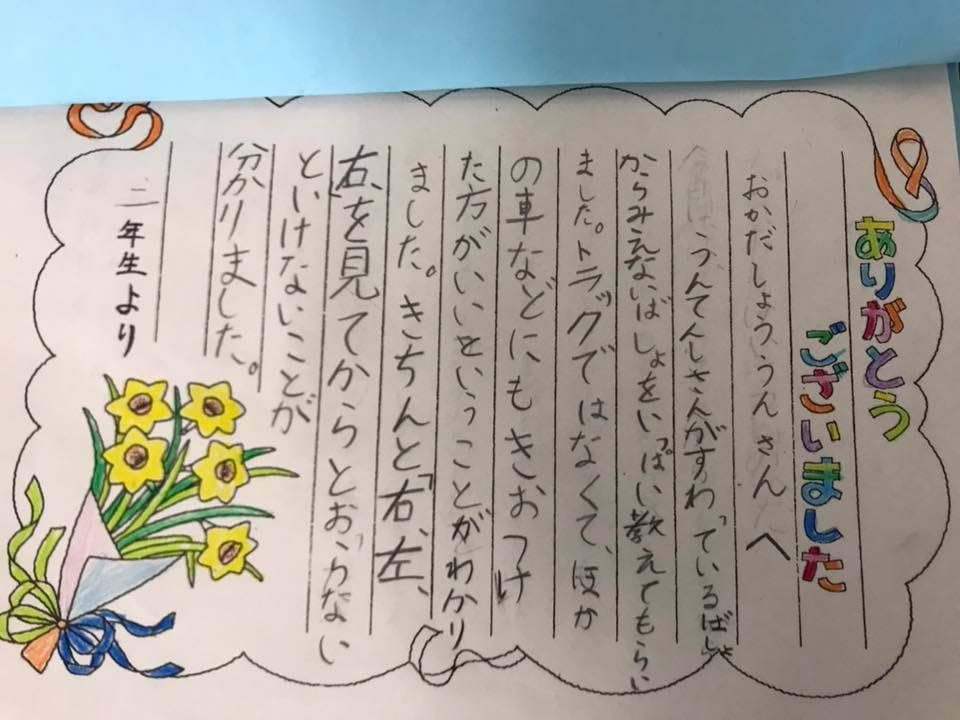 ありがとう
ございました
おかだしょううんさんへ
うんてんしさんがすわっているばしょ
からみえないばしょをいっぱい教えてもらい
ました。トラックではなくて、ほか
の車などにもきおつけ
た方がいいということがわかり
ました。きちんと「右、左、
右、を見てからとおらない
といけないことが
分かりました。
二年生より